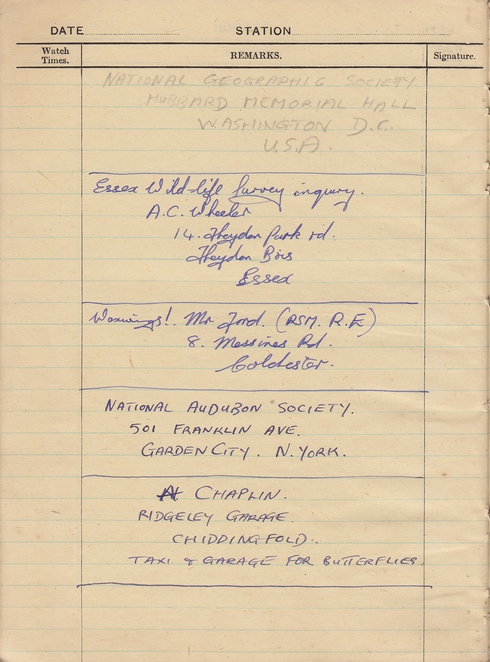 DATE STATION
Watch Times. REMARKS. Signature.
NATIONAL GEOGRAPHIC SOCIETY
HUBBARD MEMORIAL HALL
WASHINGTON D.C.
U.S.A.
Essex Wild-life Survey inquiry.
A.C. Wheeler
14. Theydon Park rd.
Theydon Bois
Essex
Waxwings! Mr Ford. (RSM. R.E)
8. Messines Rd.
Colchester.
NATIONAL AUDUBON SOCIETY.
501 FRANKLIN AVE.
GARDEN CITY. N. YORK.
A CHAPLIN.
RIDGELEY GARAGE
CHIDDINGFOLD.
TAXI & GARAGE FOR BUTTERFLIES.